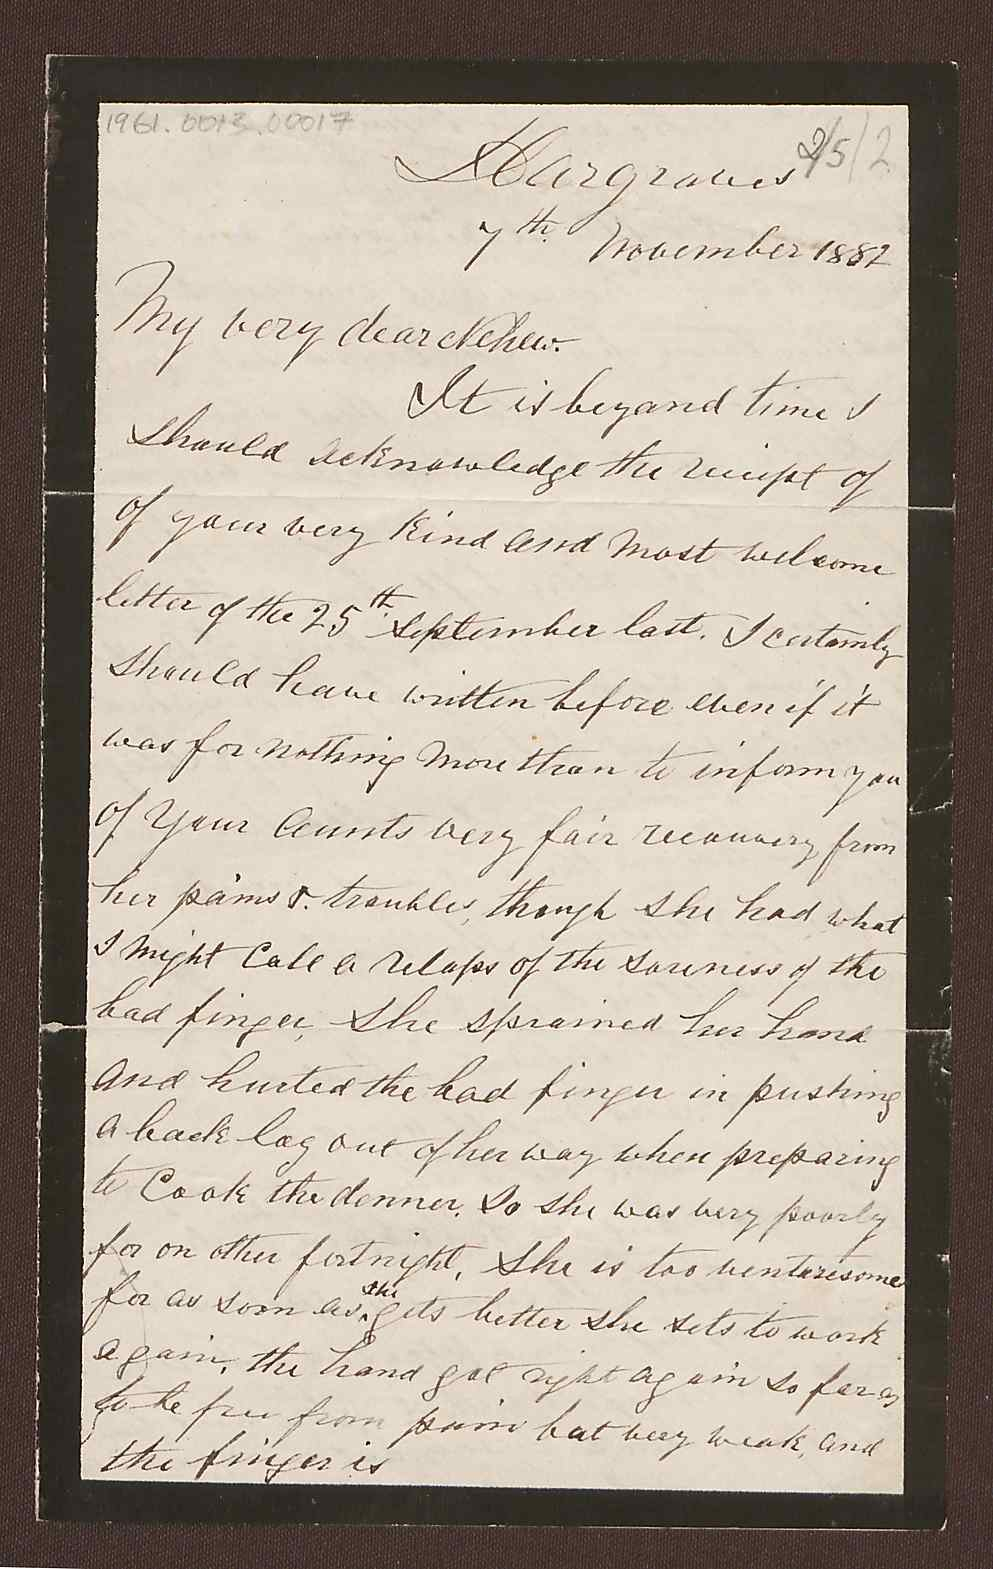 1961.0013.00017
2/5/2
Hargraves
7th November 1882
My very dear Nehew.
It is beyand time I
should acknowledge the receipt of
of your very kind and most welcome
letter of the 25th September last. I certainly
should have written before even if it
was for nothing more than to inform you
of your aunts very fair recouvery from
her pains & troubles, though she had what
I might call a relaps of the soreness of the
bad finger, She sprained her hand
and hurted the bad finger in pushing
a back log out of her way when preparing
to cook the denner. So she was very poorly
for on other fortnight, She is too venturesome
for as soon as she gets better she sets to work
again, the hand got right again so far as
to be free from pain but very weak, and
the finger is